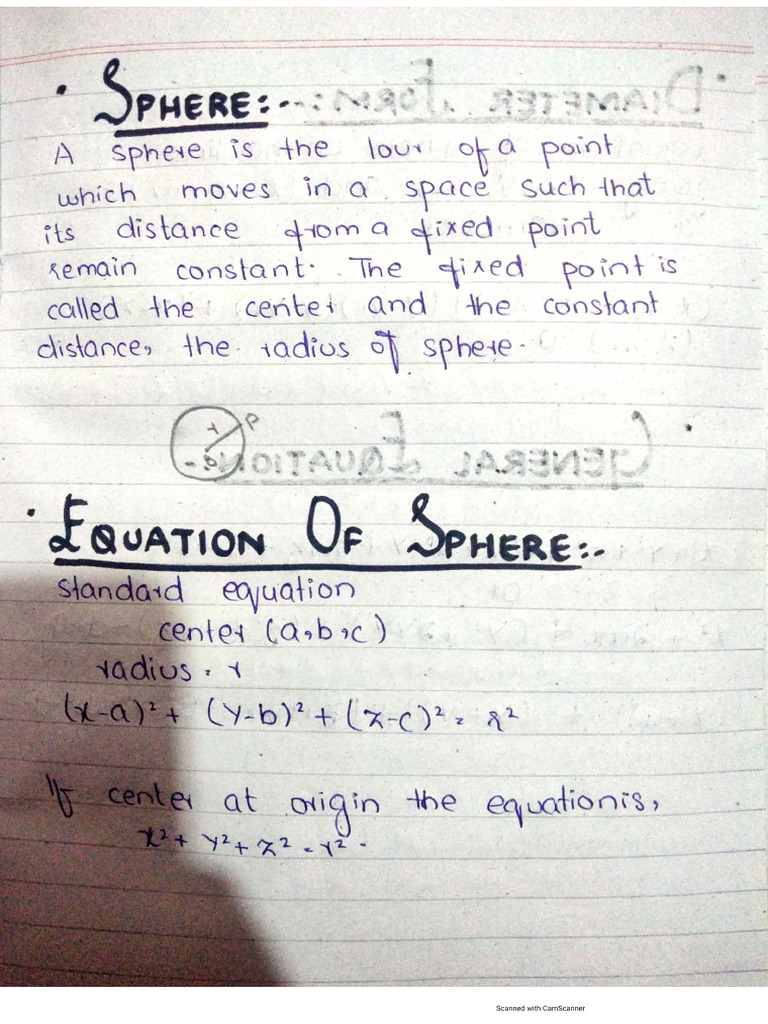 • SPHERE:-
A sphere is the locus of a point
which moves in a space such that
its distance from a fixed point
remain constant. The fixed point is
called the center and the constant
distance, the radius of sphere.
r P
• EQUATION OF SPHERE:-
Standard equation
center (a,b,c)
radius = r
(x-a)² + (y-b)² + (z-c)² = r²
If center at origin the equation is,
x² + y² + z² = r².
Scanned with CamScanner